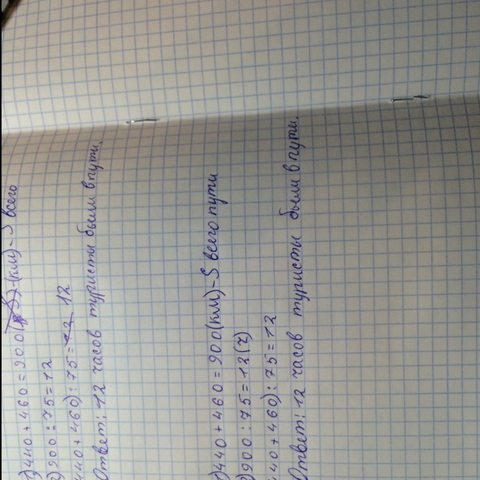 1) 440 + 460 = 900 (км) - S всего
2) 900 : 75 = 12
440 + 460) : 75 = 12 12
Ответ: 12 часов туристы были в пути.
1) 440 + 460 = 900 (км) - S всего пути
2) 900 : 75 = 12 (ч)
440 + 460) : 75 = 12
Ответ: 12 часов туристы были в пути.